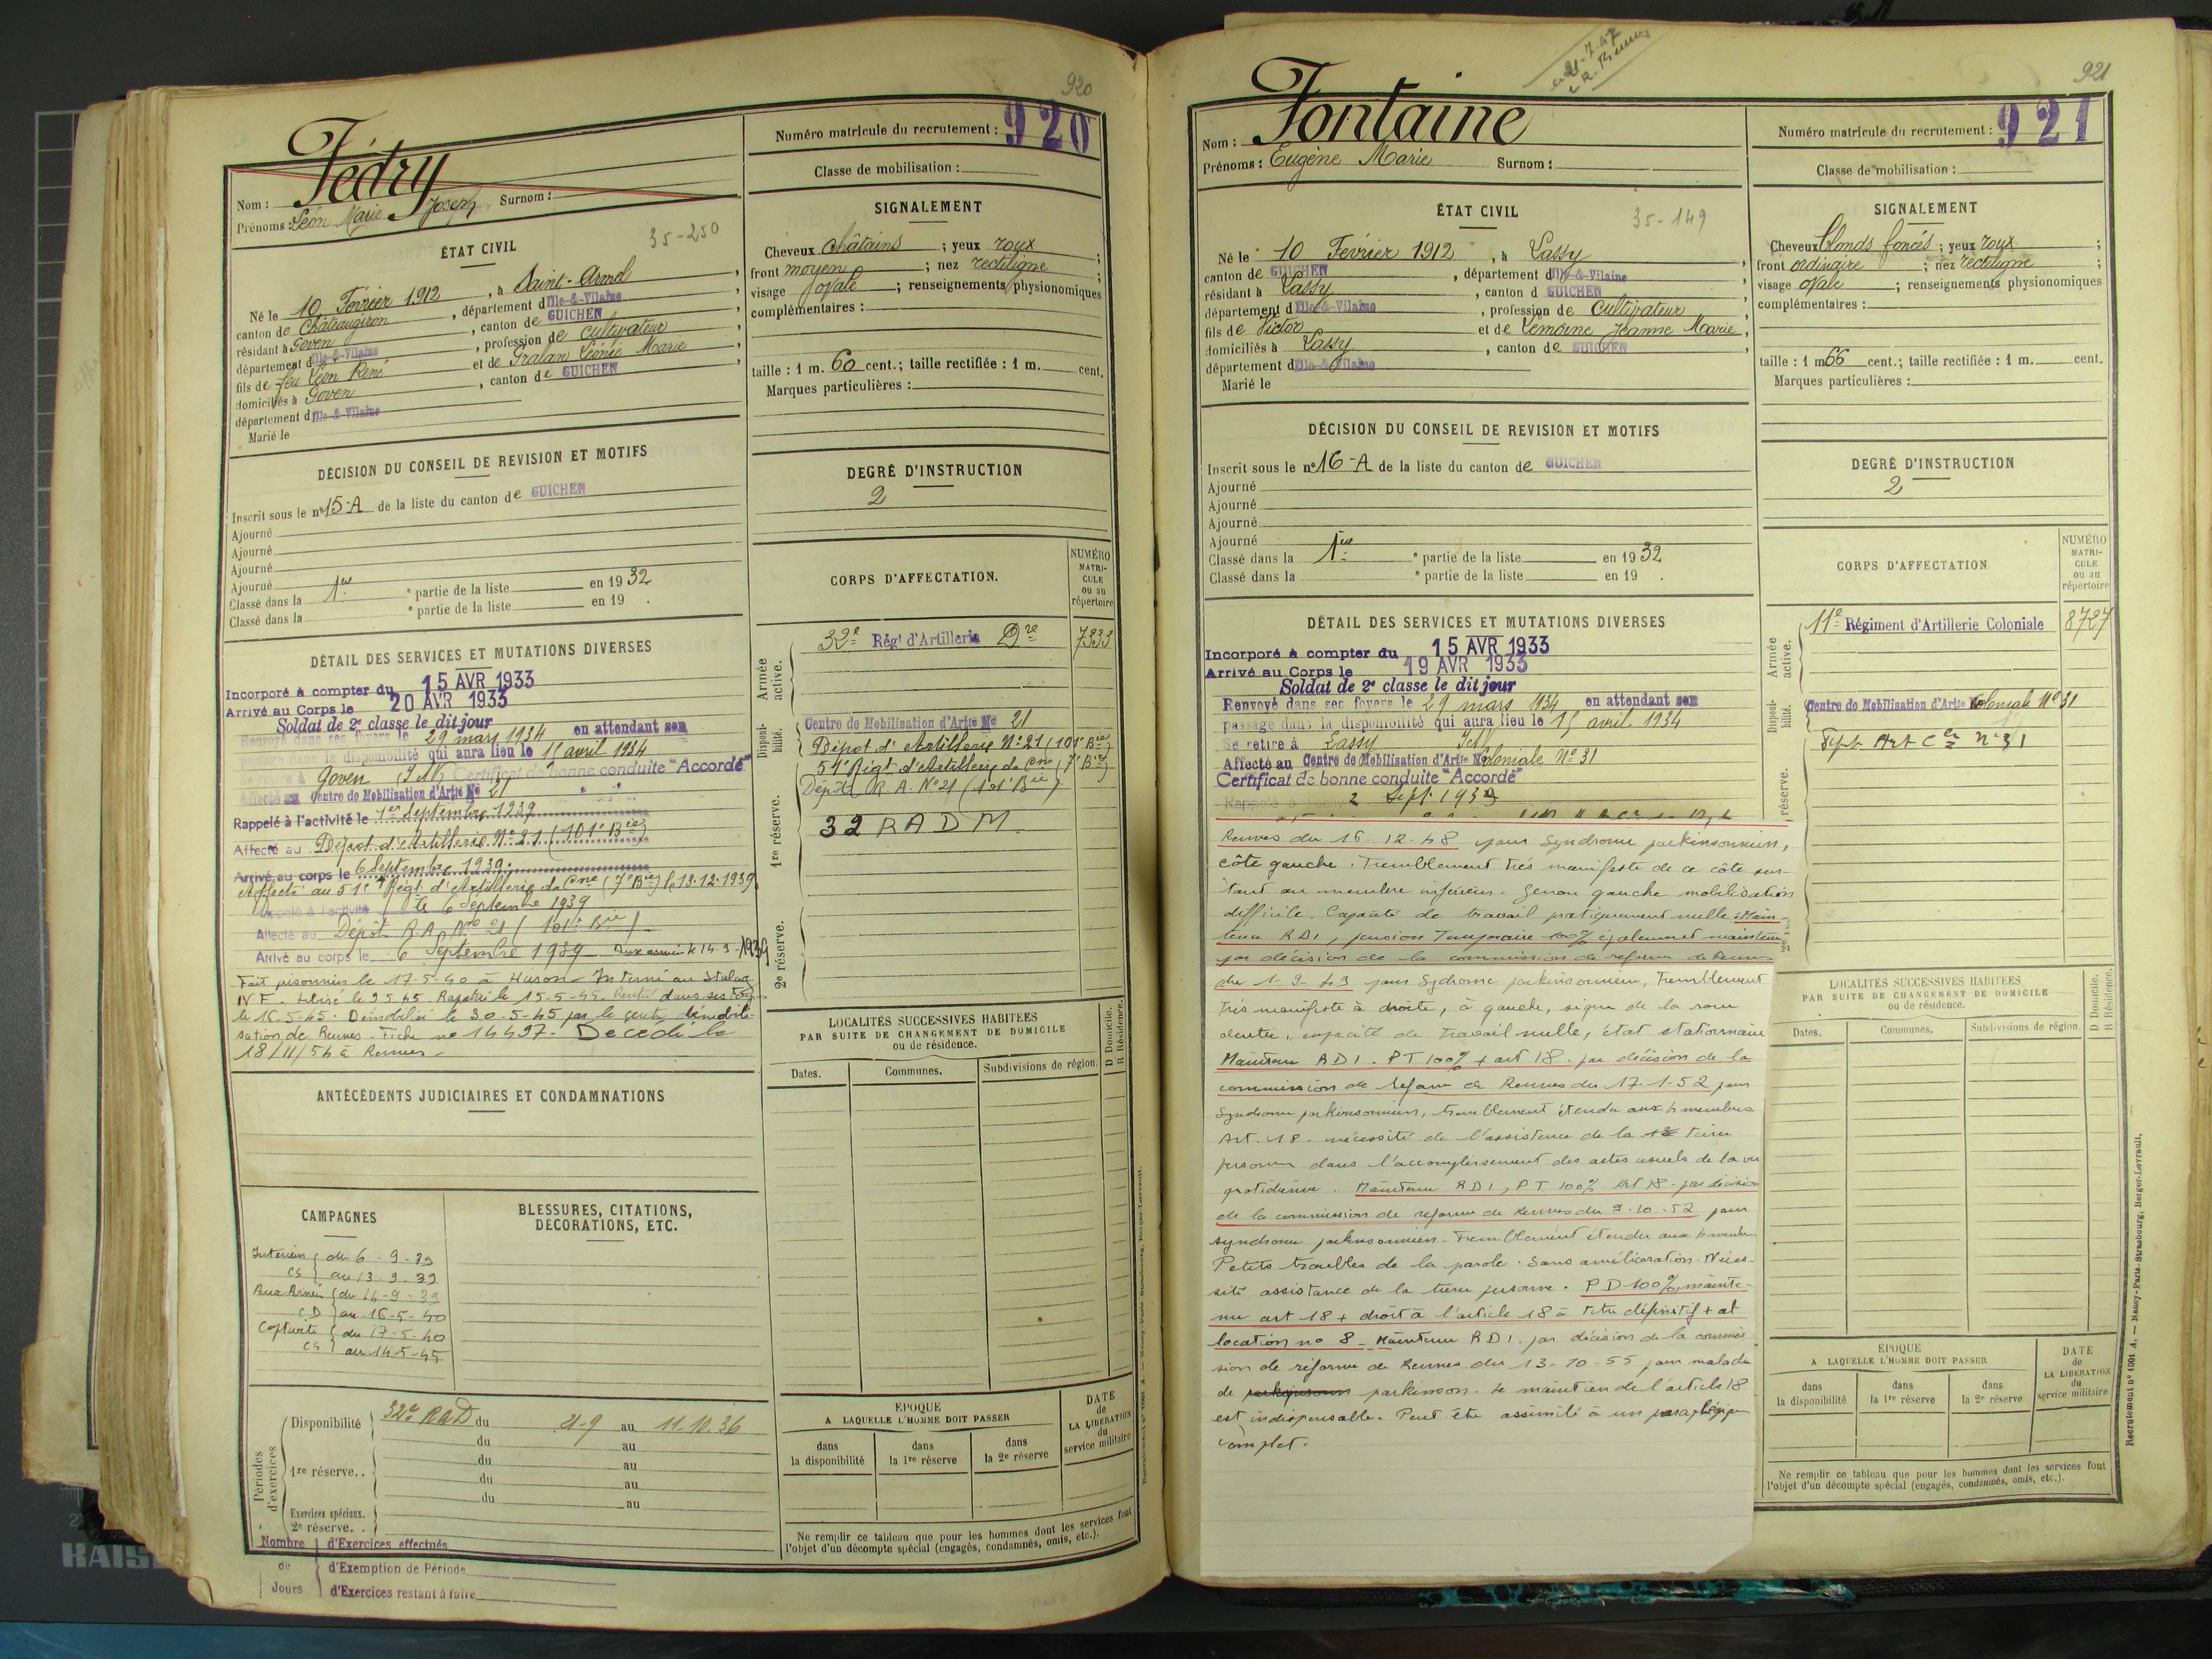 920
Nom : Fédry
Prénoms : Léon Marie Joseph Surnom :
Numéro matricule du recrutement : 920
Classe de mobilisation :
ÉTAT CIVIL
35-250
Né le 10 Février 1912, à Saint-Armel,
canton de Châteaugiron, département d'Ille-&-Vilaine
résidant à Goven, canton de GUICHEN
département d'Ille-&-Vilaine, profession de cultivateur
fils de feu Léon René et de Gralan Léonie Marie,
domiciliés à Goven, canton de GUICHEN
département d'Ille-&-Vilaine
Marié le
SIGNALEMENT
Cheveux châtains ; yeux roux ;
front moyen ; nez rectiligne ;
visage ovale ; renseignements physionomiques
complémentaires :
taille : 1 m. 60 cent.; taille rectifiée : 1 m. cent.
Marques particulières :
DÉCISION DU CONSEIL DE REVISION ET MOTIFS
Inscrit sous le n° 15-A de la liste du canton de GUICHEN
Ajourné
Ajourné
Ajourné
Ajourné
Classé dans la 1ère e partie de la liste en 1932
Classé dans la e partie de la liste en 19 .
DEGRÉ D'INSTRUCTION
2
DÉTAIL DES SERVICES ET MUTATIONS DIVERSES
Incorporé à compter du 15 AVR 1933
Arrivé au Corps le 20 AVR 1933
Soldat de 2e classe le dit jour
Renvoyé dans ses foyers le 29 mars 1934 en attendant son
passage dans la disponibilité qui aura lieu le 15 avril 1934
Se retire à Goven I&V Certificat de bonne conduite "Accordé"
Affecté au Centre de Mobilisation d'Artie N° 21
Rappelé à l'activité le 1er Septembre 1939
Affecté au Dépôt d'Artillerie N° 21 (101e Bie)
Arrivé au corps le 6 Septembre 1939
Affecté au 51e Régt d'Artillerie de Cne (7e Bie) le 13.12.1939
Rappelé à l'activité le 6 Septembre 1939
Affecté au Dépôt R.A. N° 21 (101e Bie)
Arrivé au corps le 6 Septembre 1939 Aux armées le 14-9-1939
Fait prisonnier le 17-5-40 à Interné au Stalag
IV F. Libéré le 9 5 45. Rapatrié le 15-5-45. Rentré dans ses foyers
le 16-5-45. Démobilisé le 30-5-45 par le centre démobili-
sation de Rennes. Fiche no 14497. Décédé le
18/11/54 à Rennes
CORPS D'AFFECTATION.
NUMÉRO MATRI-CULE ou au répertoire
Armée active.
32e Régt d'Artillerie Dre 7333
Disponi-bilité.
Centre de Mobilisation d'Artie N° 21
Dépôt d'Artillerie N° 21 (101e Bie)
51e Régt d'Artillerie de Cne (7e Bie)
Dépôt R.A. N° 21 (101e Bie)
1re réserve.
32 RADM
2e réserve.
ANTÉCÉDENTS JUDICIAIRES ET CONDAMNATIONS
LOCALITÉS SUCCESSIVES HABITÉES
PAR SUITE DE CHANGEMENT DE DOMICILE
ou de résidence.
D Domicile.
R Résidence.
Dates. Communes. Subdivisions de région.
CAMPAGNES
Intérieur du 6-9-39
CS au 13-9-39
Aux Armées du 14-9-39
CD au 16-5-40
Captivité du 17-5-40
CS au 14-5-45
BLESSURES, CITATIONS,
DÉCORATIONS, ETC.
Périodes d'exercices
Disponibilité 32e RAD du 21-9 au 11.10.36
du au
1re réserve.. du au
du au
du au
Exercices spéciaux.
2e réserve. .
Nombre de Jours
d'Exercices effectués
d'Exemption de Période
d'Exercices restant à faire
ÉPOQUE
A LAQUELLE L'HOMME DOIT PASSER
dans la disponibilité
dans la 1re réserve
dans la 2e réserve
DATE de LA LIBÉRATION du service militaire
Ne remplir ce tableau que pour les hommes dont les services font
l'objet d'un décompte spécial (engagés, condamnés, omis, etc.).
921
21-7-47
Nom : Fontaine
Prénoms : Eugène Marie Surnom :
Numéro matricule du recrutement : 921
Classe de mobilisation :
ÉTAT CIVIL
35-149
Né le 10 Février 1912, à Lassy,
canton de GUICHEN, département d'Ille-&-Vilaine
résidant à Lassy, canton d GUICHEN
département d'Ille-&-Vilaine, profession de cultivateur
fils de Victor et de Lemoine Jeanne Marie,
domiciliés à Lassy, canton de GUICHEN
département d'Ille-&-Vilaine
Marié le
SIGNALEMENT
Cheveux blonds foncés ; yeux roux ;
front ordinaire ; nez rectiligne ;
visage ovale ; renseignements physionomiques
complémentaires :
taille : 1 m 66 cent.; taille rectifiée : 1 m. cent.
Marques particulières :
DÉCISION DU CONSEIL DE REVISION ET MOTIFS
Inscrit sous le n° 16-A de la liste du canton de GUICHEN
Ajourné
Ajourné
Ajourné
Ajourné
Classé dans la 1ère e partie de la liste en 1932
Classé dans la e partie de la liste en 19 .
DEGRÉ D'INSTRUCTION
2
DÉTAIL DES SERVICES ET MUTATIONS DIVERSES
Incorporé à compter du 15 AVR 1933
Arrivé au Corps le 19 AVR 1933
Soldat de 2e classe le dit jour
Renvoyé dans ses foyers le 29 mars 1934 en attendant son
passage dans la disponibilité qui aura lieu le 15 avril 1934
Se retire à Lassy I&V
Affecté au Centre de Mobilisation d'Artie Coloniale N° 31
Certificat de bonne conduite "Accordé"
Rappelé à 2 Sept 1939
Rennes du 16-12-48 pour Syndrome parkinsonnien,
côté gauche. Tremblement très manifeste de ce côté sur-
tout au membre inférieur. Genou gauche mobilisation
difficile. Capacité de travail pratiquement nulle. Main-
tenu RD1, pension Temporaire 100% également maintenue
par décision de la commission de réforme de Rennes
du 1-9-49 pour Sydrome parkinsonnien, Tremblement
très manifeste à droite, à gauche, signe de la roue
dentée, capacité de travail nulle, état stationnaire
Maintenu RD1. PT 100% + art 18. par décision de la
commission de réforme de Rennes du 17-1-52 pour
Syndrome parkinsonnien, tremblement étendu aux 4 membres
Art. 18. nécessité de l'assistance de la tierce
personne dans l'accomplissement des actes usuels de la vie
quotidienne. Maintenu RD1, PT 100% Art 18 - par décision
de la commission de réforme de Rennes du 9-10-52 pour
syndrome parkinsonnien. Tremblement étendu aux 4 membres
Petits troubles de la parole. Sans amélioration. Néces-
sité assistance de la tierce personne. PD 100%, mainte-
nu art 18 + droit à l'article 18 à titre définitif + al
location no 8. Maintenu RD1. par décision de la commis
sion de réforme de Rennes du 13-10-55 pour maladie
de parkinson. Le maintien de l'article 18
est indispensable. Peut être assimilé à un paraplégique
complet.
CORPS D'AFFECTATION
NUMÉRO MATRI-CULE ou au répertoire
Armée active.
11e Régiment d'Artillerie Coloniale 8727
Disponi-bilité.
Centre de Mobilisation d'Artie Coloniale N° 31
Art Cle n° 31
réserve.
LOCALITÉS SUCCESSIVES HABITÉES
PAR SUITE DE CHANGEMENT DE DOMICILE
ou de résidence.
D Domicile.
R Résidence.
Dates. Communes. Subdivisions de région.
ÉPOQUE
A LAQUELLE L'HOMME DOIT PASSER
dans la disponibilité
dans la 1re réserve
dans la 2e réserve
DATE de LA LIBÉRATION du service militaire
Ne remplir ce tableau que pour les hommes dont les services font
l'objet d'un décompte spécial (engagés, condamnés, omis, etc.).
Recrutement n° 1001 A. — Nancy-Paris-Strasbourg, Berger-Levrault.